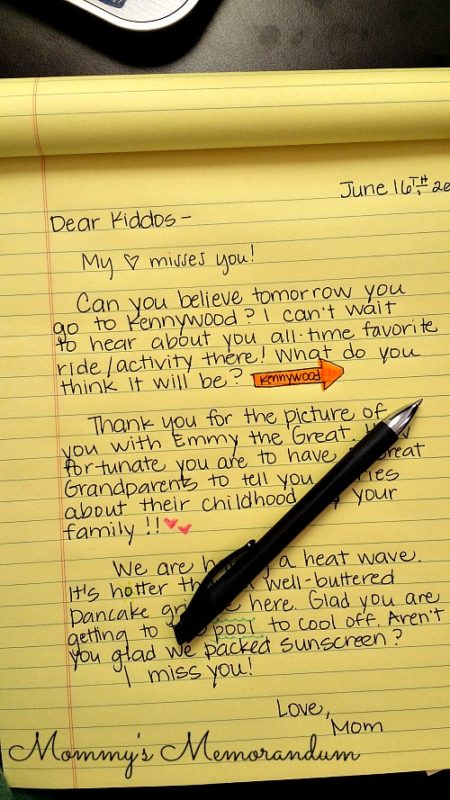 June 16TH, 20
Dear Kiddos-
My ♡ misses you!
Can you believe tomorrow you
go to Kennywood? I can't wait
to hear about you all-time favorite
ride/activity there! What do you
think it will be? Kennywood
Thank you for the picture of
you with Emmy the Great.
fortunate you are to have
Grandparents to tell you
about their childhood your
family!!
We are a heat wave.
It's hotter well-buttered
pancake here. Glad you are
getting to pool to cool off. Aren't
you glad we packed sunscreen?
I miss you!
Love,
Mom
Mommy's Memorandum